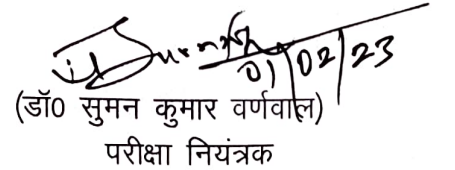 01/02/23
(डॉ0 सुमन कुमार वर्णवाल)
परीक्षा नियंत्रक